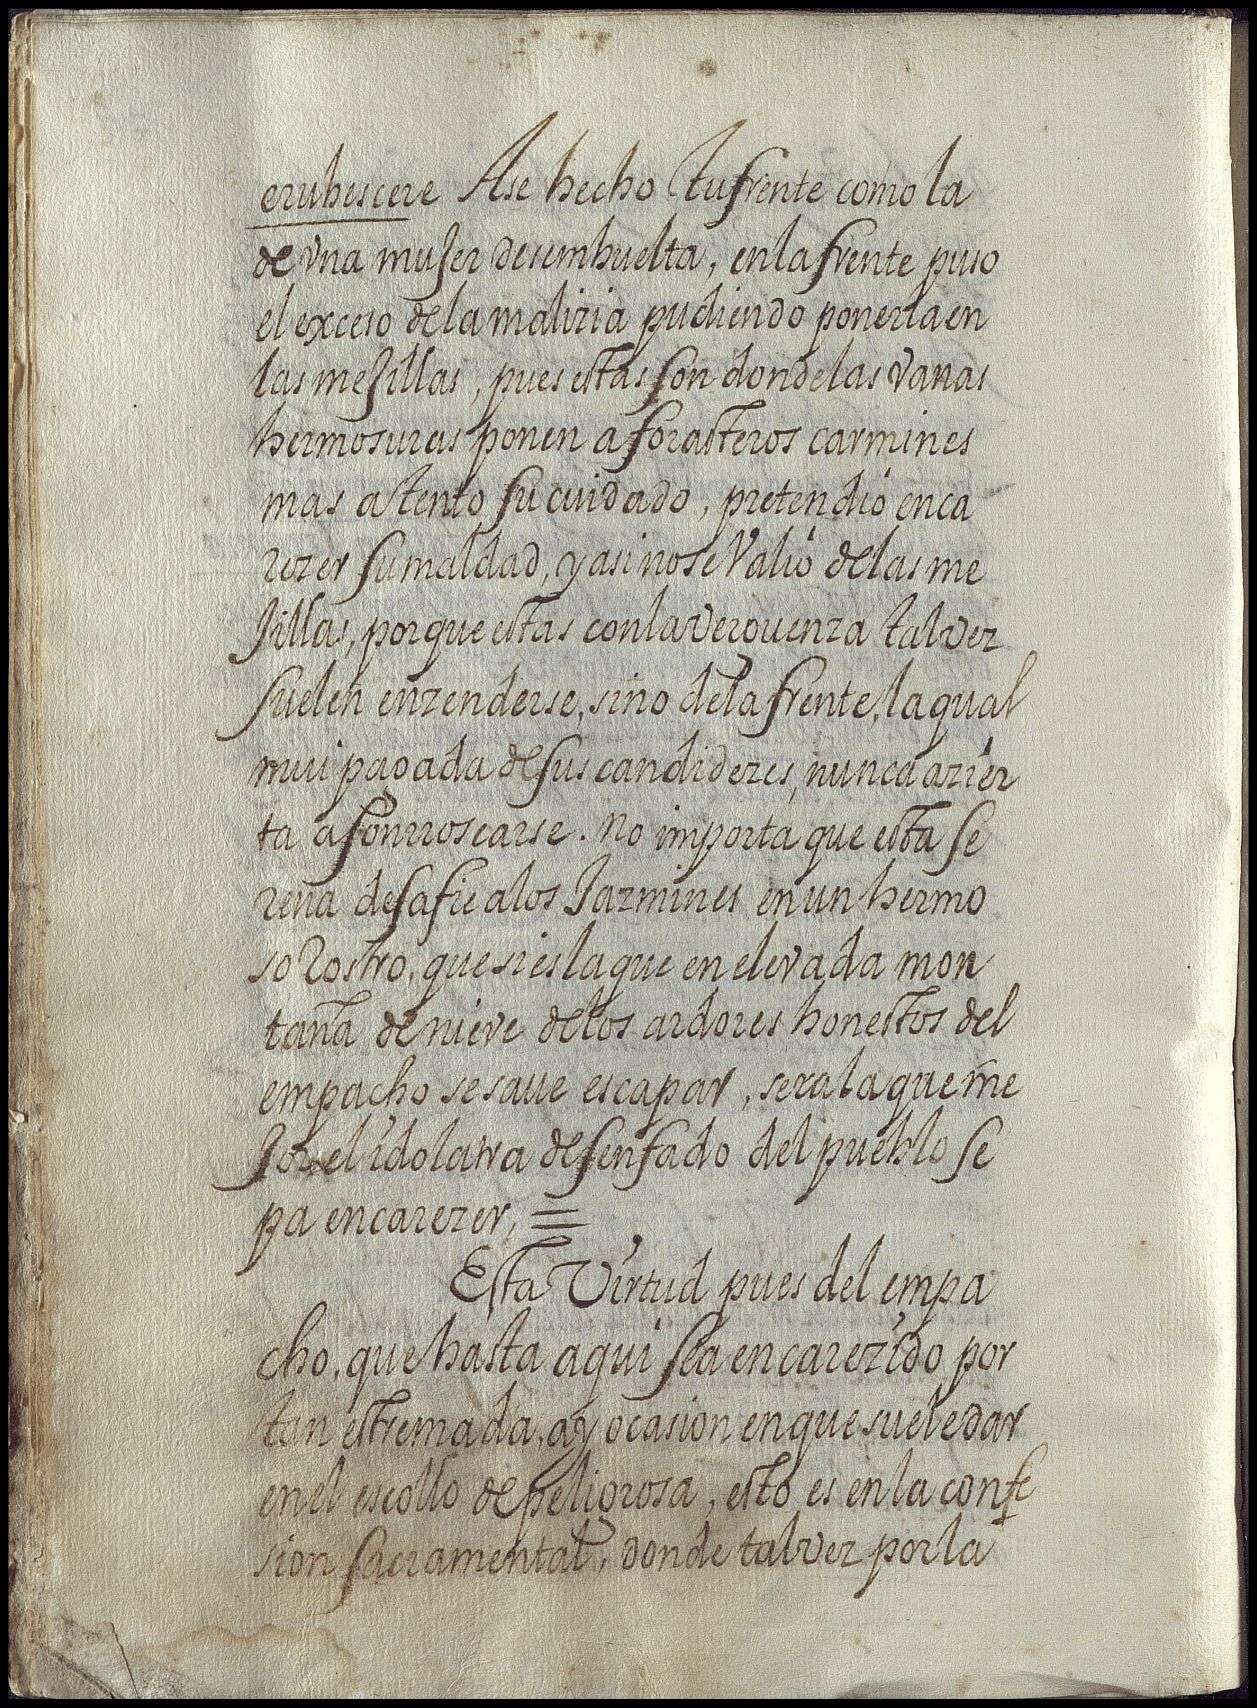 erubescere Ase hecho tu frente como la
de vna muJer desembuelta, en la frente puso
el exceso de la malizia pudiendo ponerla en
las meJillas, pues estas son donde las vanas
hermosuras ponen a forasteros carmines
mas atento su cuidado, pretendió enca
rezer su maldad, y asi no se Valió de las me
Jillas, porque estas con la verguenza tal vez
suelen enzenderse, sino de la frente, la qual
mui pagada de sus candidezes, nunca azier
ta a sonrrosearse. No importa que esta se
rena desafie a los Jazmines en un hermo
so Rostro, que si es la que en elevada mon
taña de nieve de los ardores honestos del
empacho se saue escapar, sera la que me
Jor el idolatra desenfado del pueblo se
pa encarezer, =
Esta Virtud pues del empa
cho, que hasta aqui sea encarezido por
tan estremada, ay ocasion en que suele dar
en el escollo de peligrosa, esto es en la confe
sion sacramental, donde tal vez por la